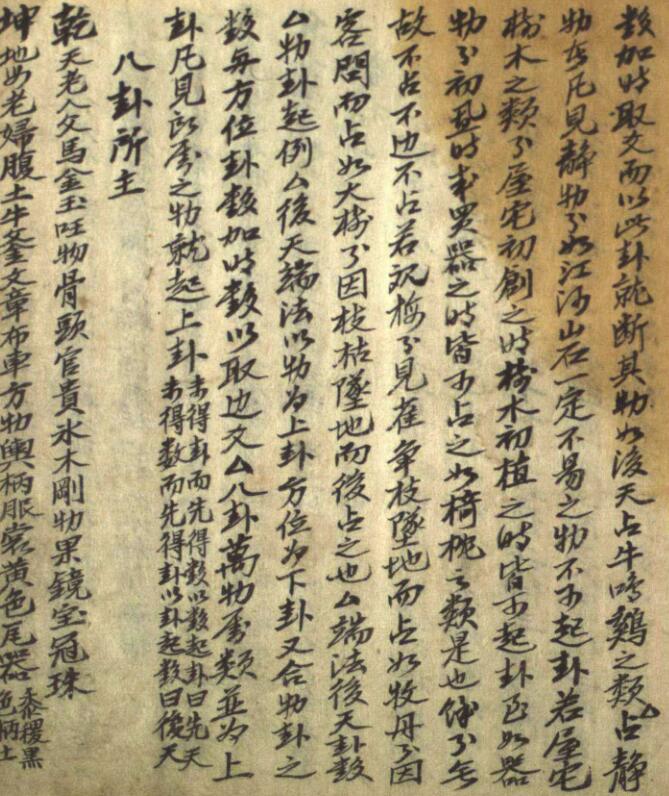 数加时取爻而以此卦就断其物如後天占牛鸣鷄之類占静
物者凡見静物則如江河山石一定不易之物不可起卦若屋宅
樹木之類則屋宅初創之时樹木初植之时皆可起卦至如器
物則初置时或買器之时皆可占之如椅枕之類是也餘則無
故不占不迯不占若观梅則見雀争枝墜地而占如牧丹則因
客問而占如大樹則因枝枯墜地而後占之也
物卦起例
後天端法以物为上卦方位为下卦又合物卦之
数每方位卦数加时数以取迯爻
八卦萬物屬類並为上
卦凡見所屬之物就起上卦
未得卦而先得数以数起卦曰先天
未得数而先得卦以卦起数曰後天
八卦所主
乾天老人父馬金玉旺物骨頭官貴氷木剛物果鏡宝冠珠
坤地母老婦腹土牛釜文章布車方物輿柄服裳黄色瓦器
黍稷黑
色柄土